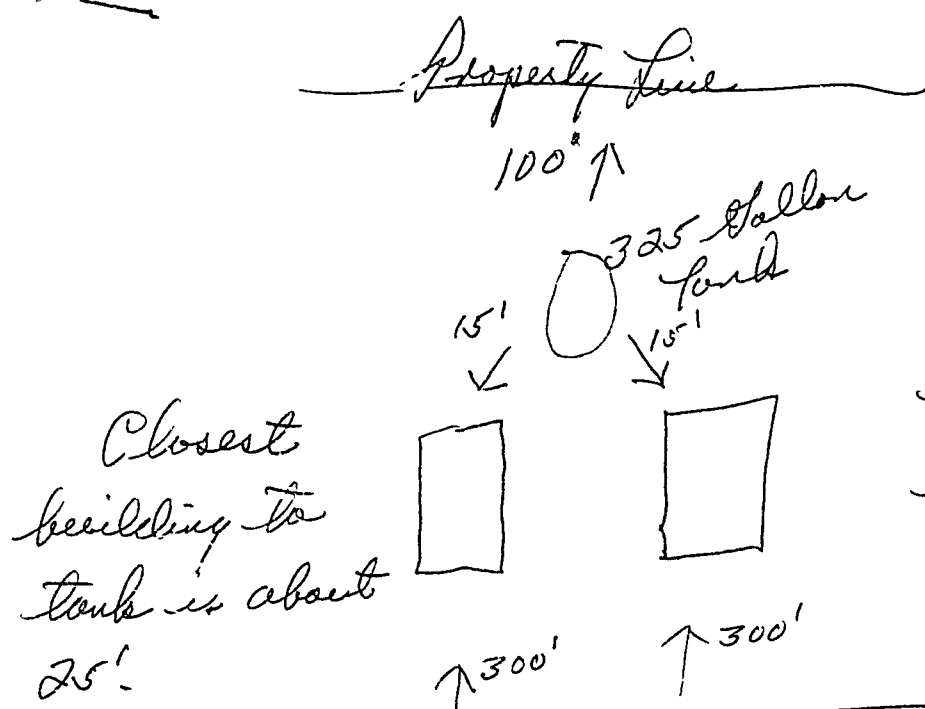 Property Line
100"
325 Gallon
Tank
15'
15'
Closest
building to
tank is about
25'.
300'
300'